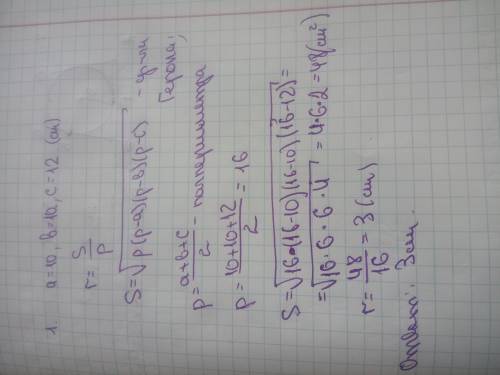 1. a=10, b=10, c=12 (см)
r = S/p
S=√p(p-a)(p-b)(p-c) - ф-ла Герона,
p = (a+b+c)/2 - полупериметра
p = (10+10+12)/2 = 16
S=√16*(16-10)(16-10)(16-12) =
=√16·6·6·4 = 4·6·2 = 48(см²)
r = 48/16 = 3 (см)
Ответ: 3см.